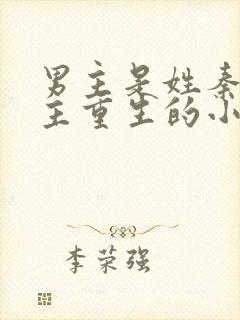 男主是姓秦
主重生的小
李荣强